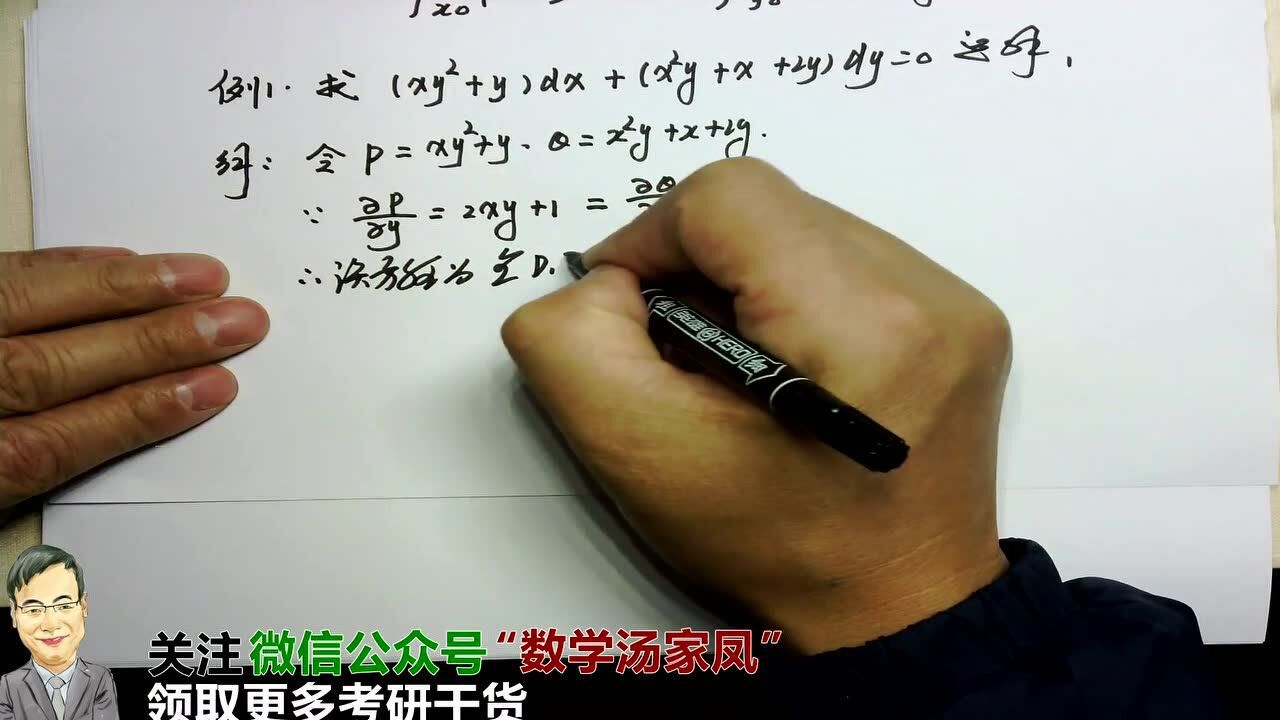 例1. 求 (xy²+y)dx + (x²y+x+2y)dy=0 通解.
解: 令 P = xy²+y. Q = x²y+x+2y.
∵ ∂P/∂y = 2xy+1 = ∂Q
∴ 该方程为全D.
HERO
关注微信公众号“数学汤家凤”
领取更多考研干货